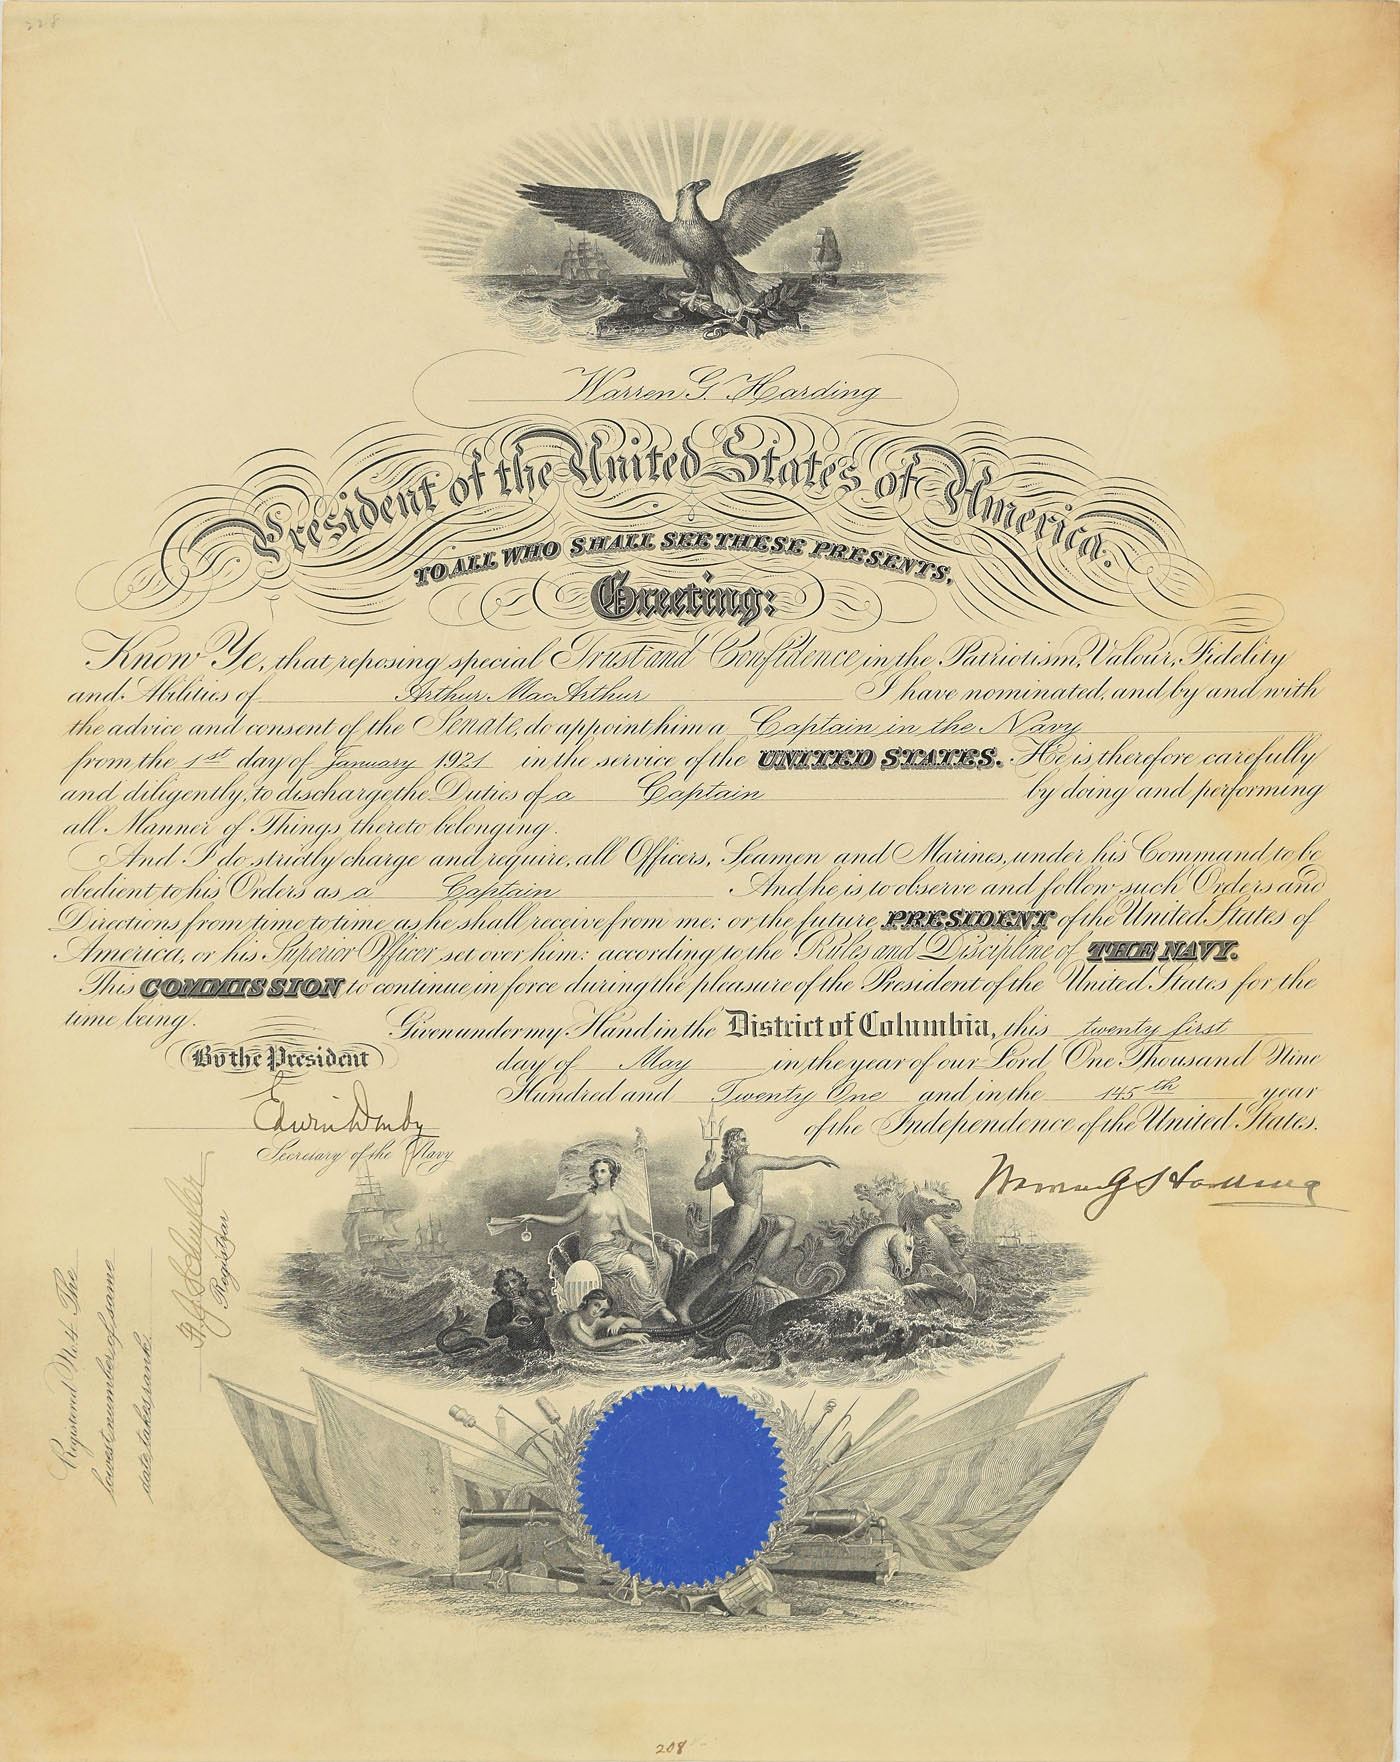 228
Warren G. Harding
President of the United States of America.
TO ALL WHO SHALL SEE THESE PRESENTS,
Greeting:
Know Ye, that reposing special Trust and Confidence in the Patriotism, Valour, Fidelity
and Abilities of Arthur MacArthur I have nominated, and by and with
the advice and consent of the Senate, do appoint him a Captain in the Navy
from the 1st day of January 1921 in the service of the UNITED STATES. He is therefore carefully
and diligently, to discharge the Duties of a Captain by doing and performing
all Manner of Things thereto belonging.
And I do strictly charge and require, all Officers, Seamen and Marines, under his Command to be
obedient to his Orders as a Captain And he is to observe and follow such Orders and
Directions from time to time as he shall receive from me: or the future PRESIDENT of the United States of
America, or his Superior Officer set over him: according to the Rules and Discipline of THE NAVY.
This COMMISSION to continue in force during the pleasure of the President of the United States for the
time being.
Given under my Hand in the District of Columbia, this twenty first
By the President
day of May in the year of our Lord, One Thousand Nine
Hundred and Twenty One and in the 145th year
Edwin Denby
of the Independence of the United States.
Secretary of the Navy
Warren G Harding
G J Schuyler
Registrar
Registered No. 4 The
lowest number of same
date takes rank.
208